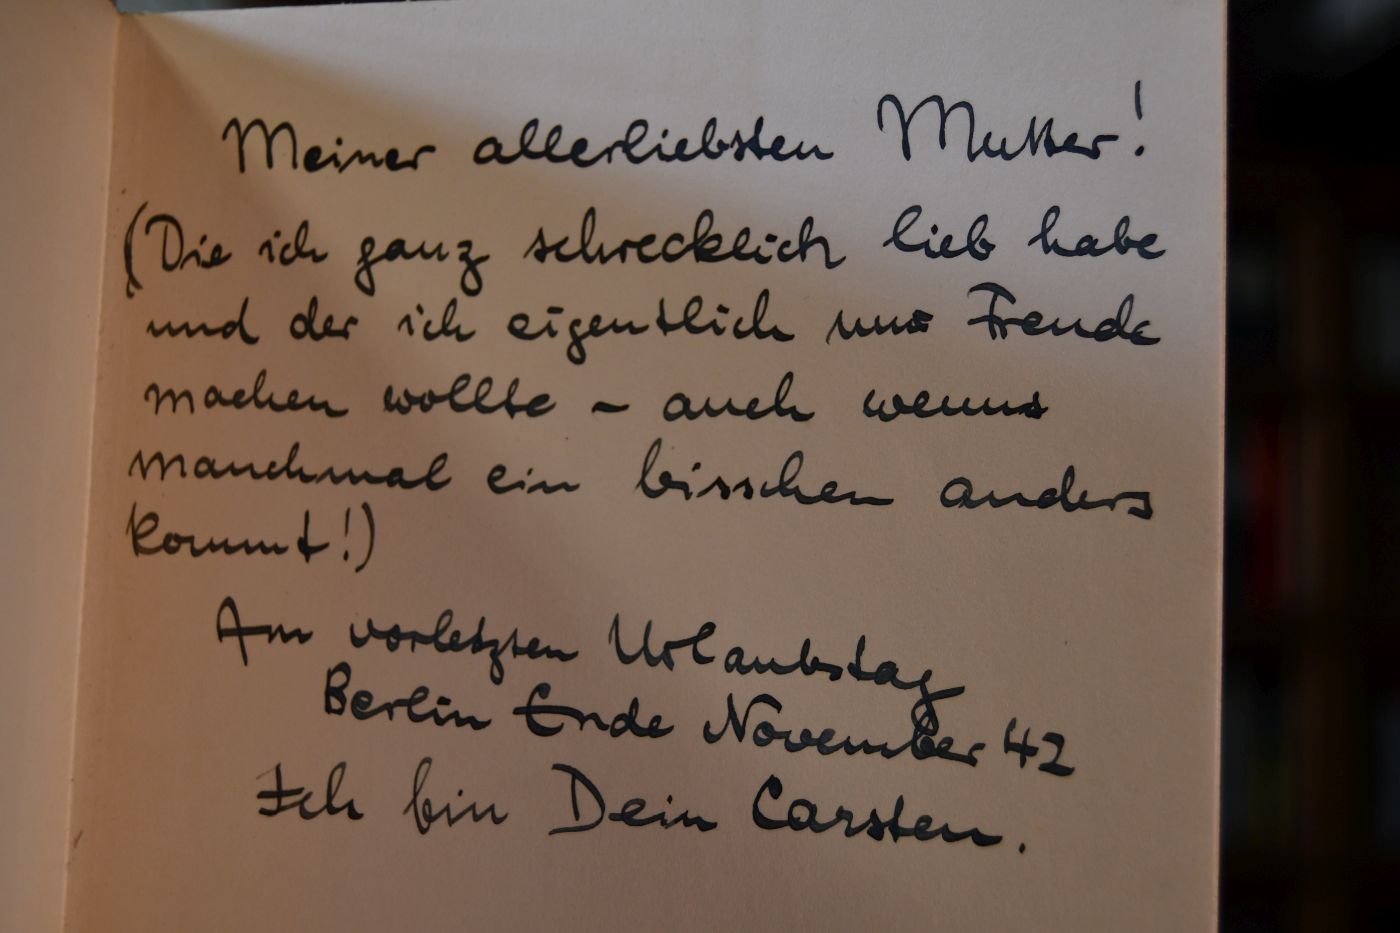 Meiner allerliebsten Mutter!
(Die ich ganz schrecklich lieb habe
und der ich eigentlich nur Freude
machen wollte – auch wenns
manchmal ein bisschen anders
kommt!)
Am vorletzten Urlaubstag
Berlin Ende November 42
Ich bin Dein Carsten.